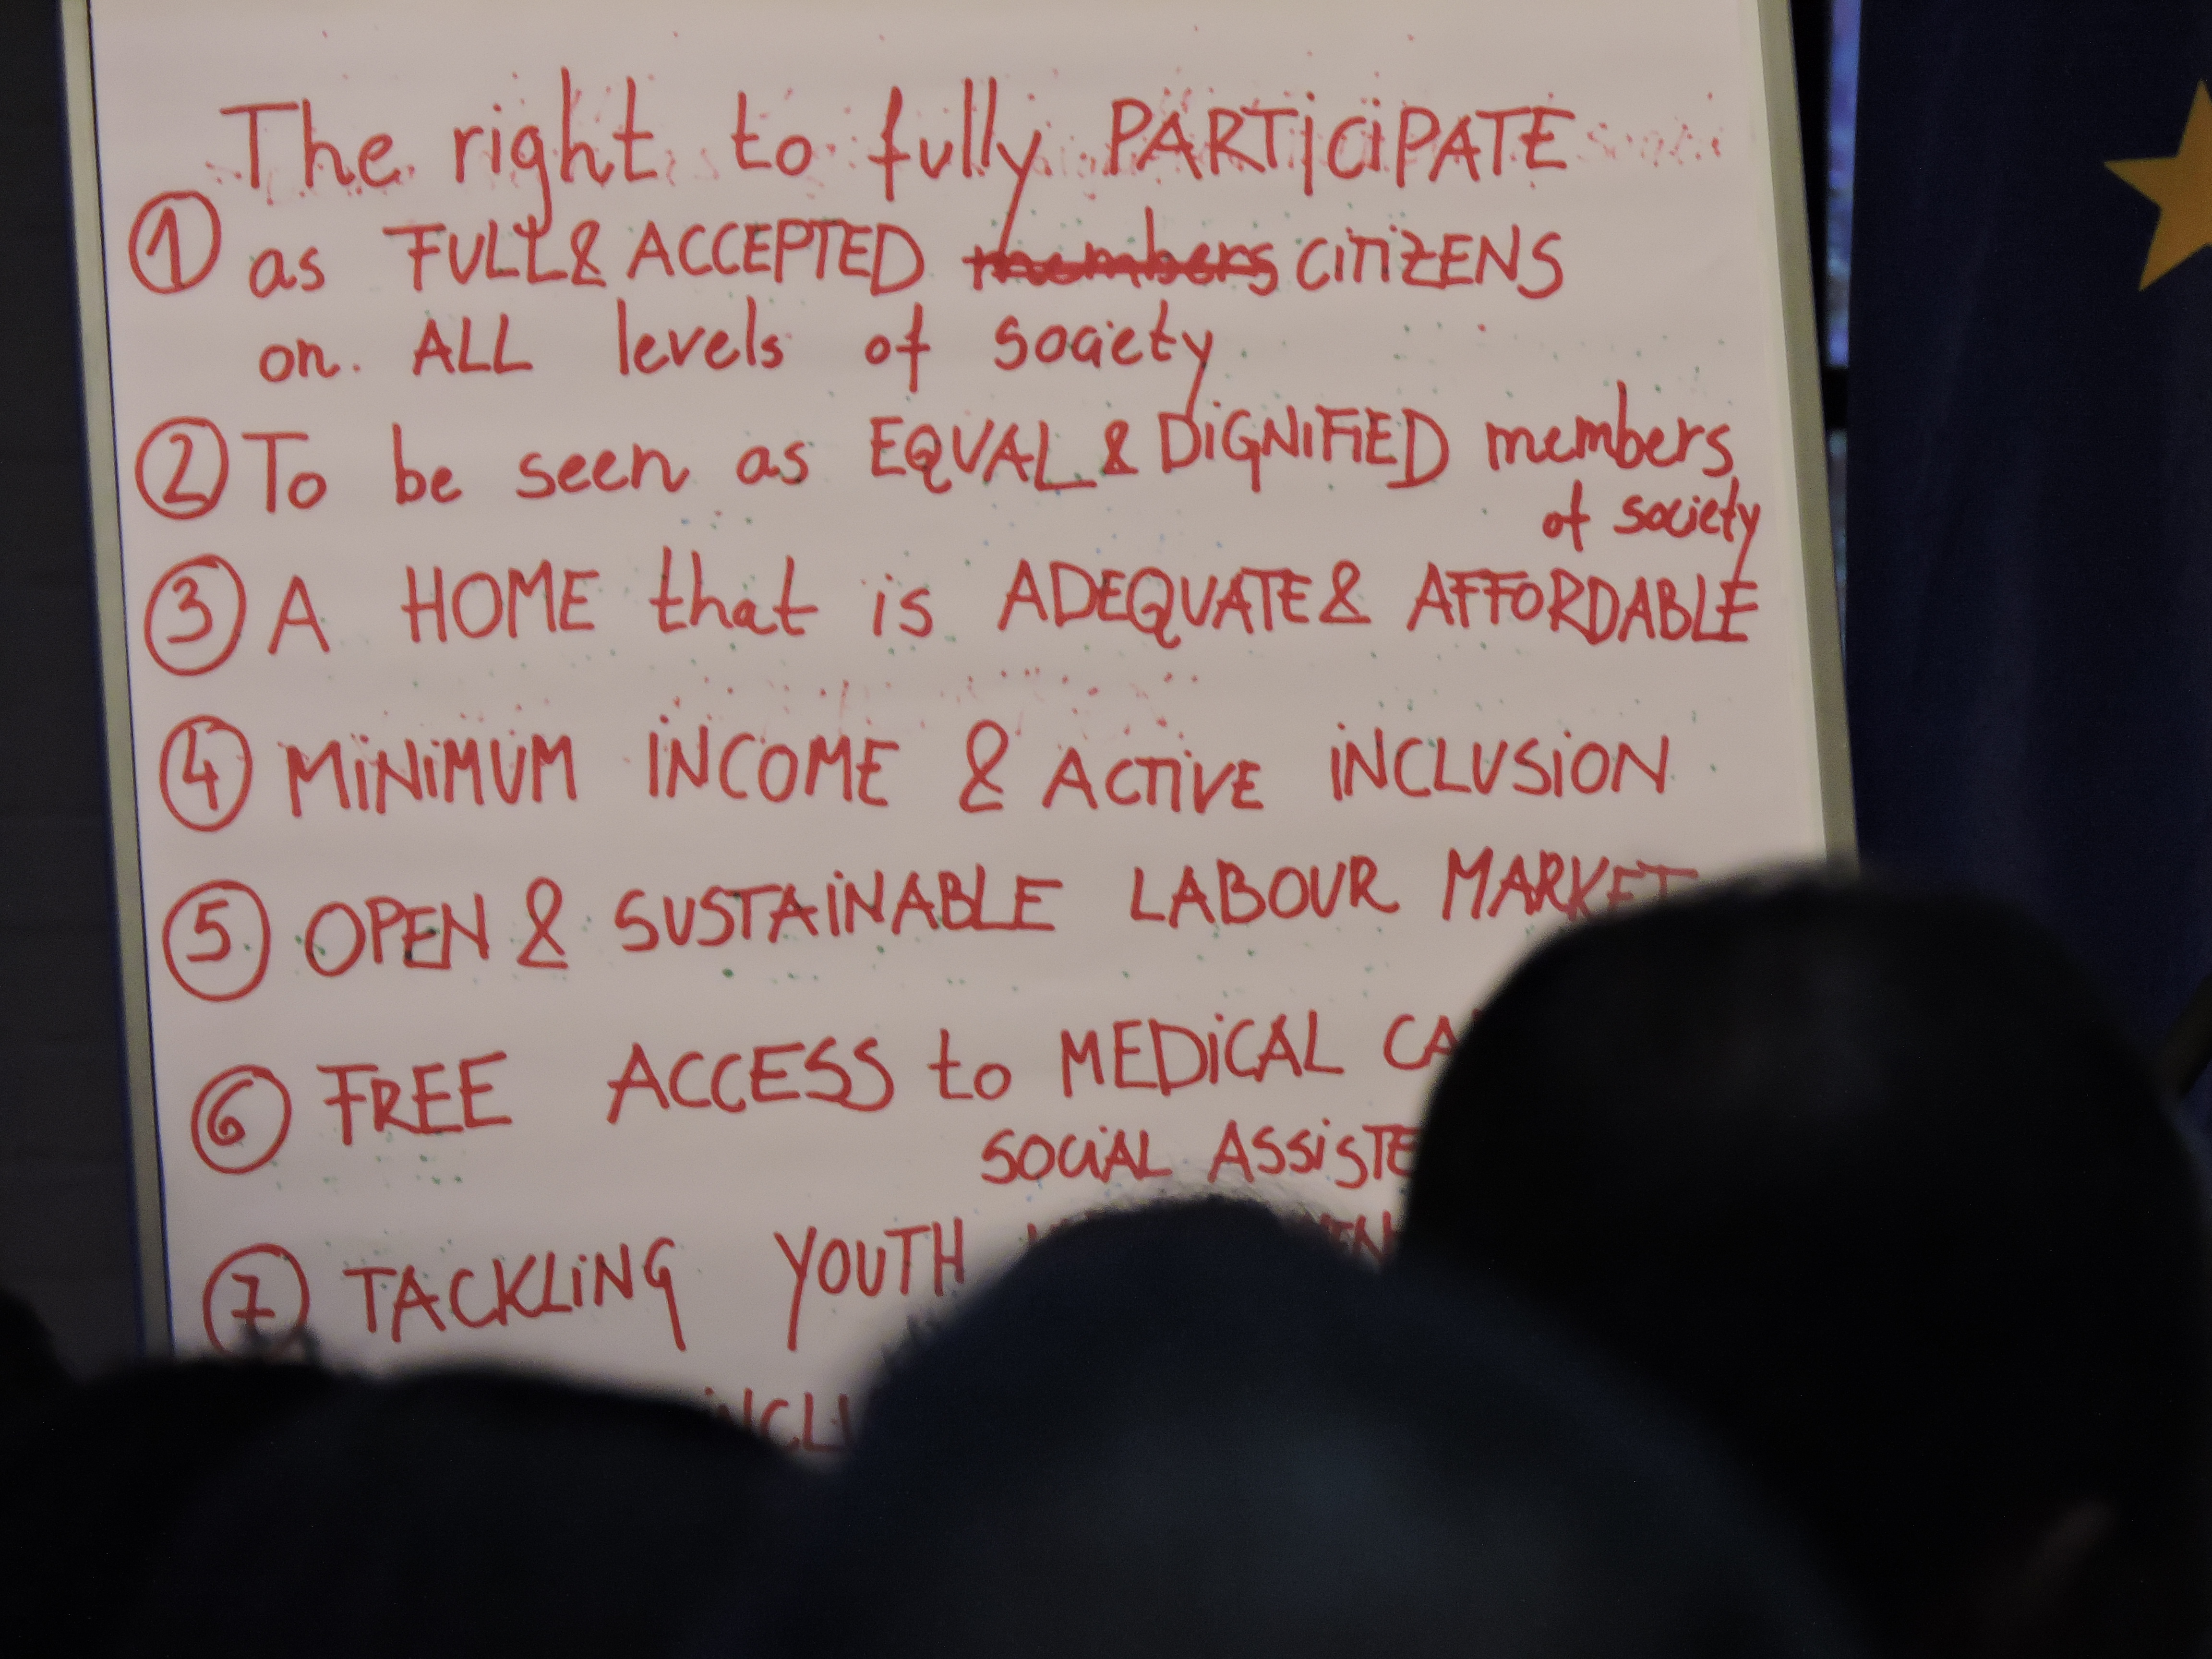 The right to fully PARTiCiPATE
① as FULL & ACCEPTED members CiTiZENS
on ALL levels of society
② To be seen as EQUAL & DiGNiFiED members
of society
③ A HOME that is ADEQUATE & AFFORDABLE
④ MiNiMUM iNCOME & ACTiVE iNCLUSiON
⑤ OPEN & SUSTAiNABLE LABOUR MARKET
⑥ FREE ACCESS to MEDiCAL
SOCiAL
⑦ TACKLiNG YOUTH